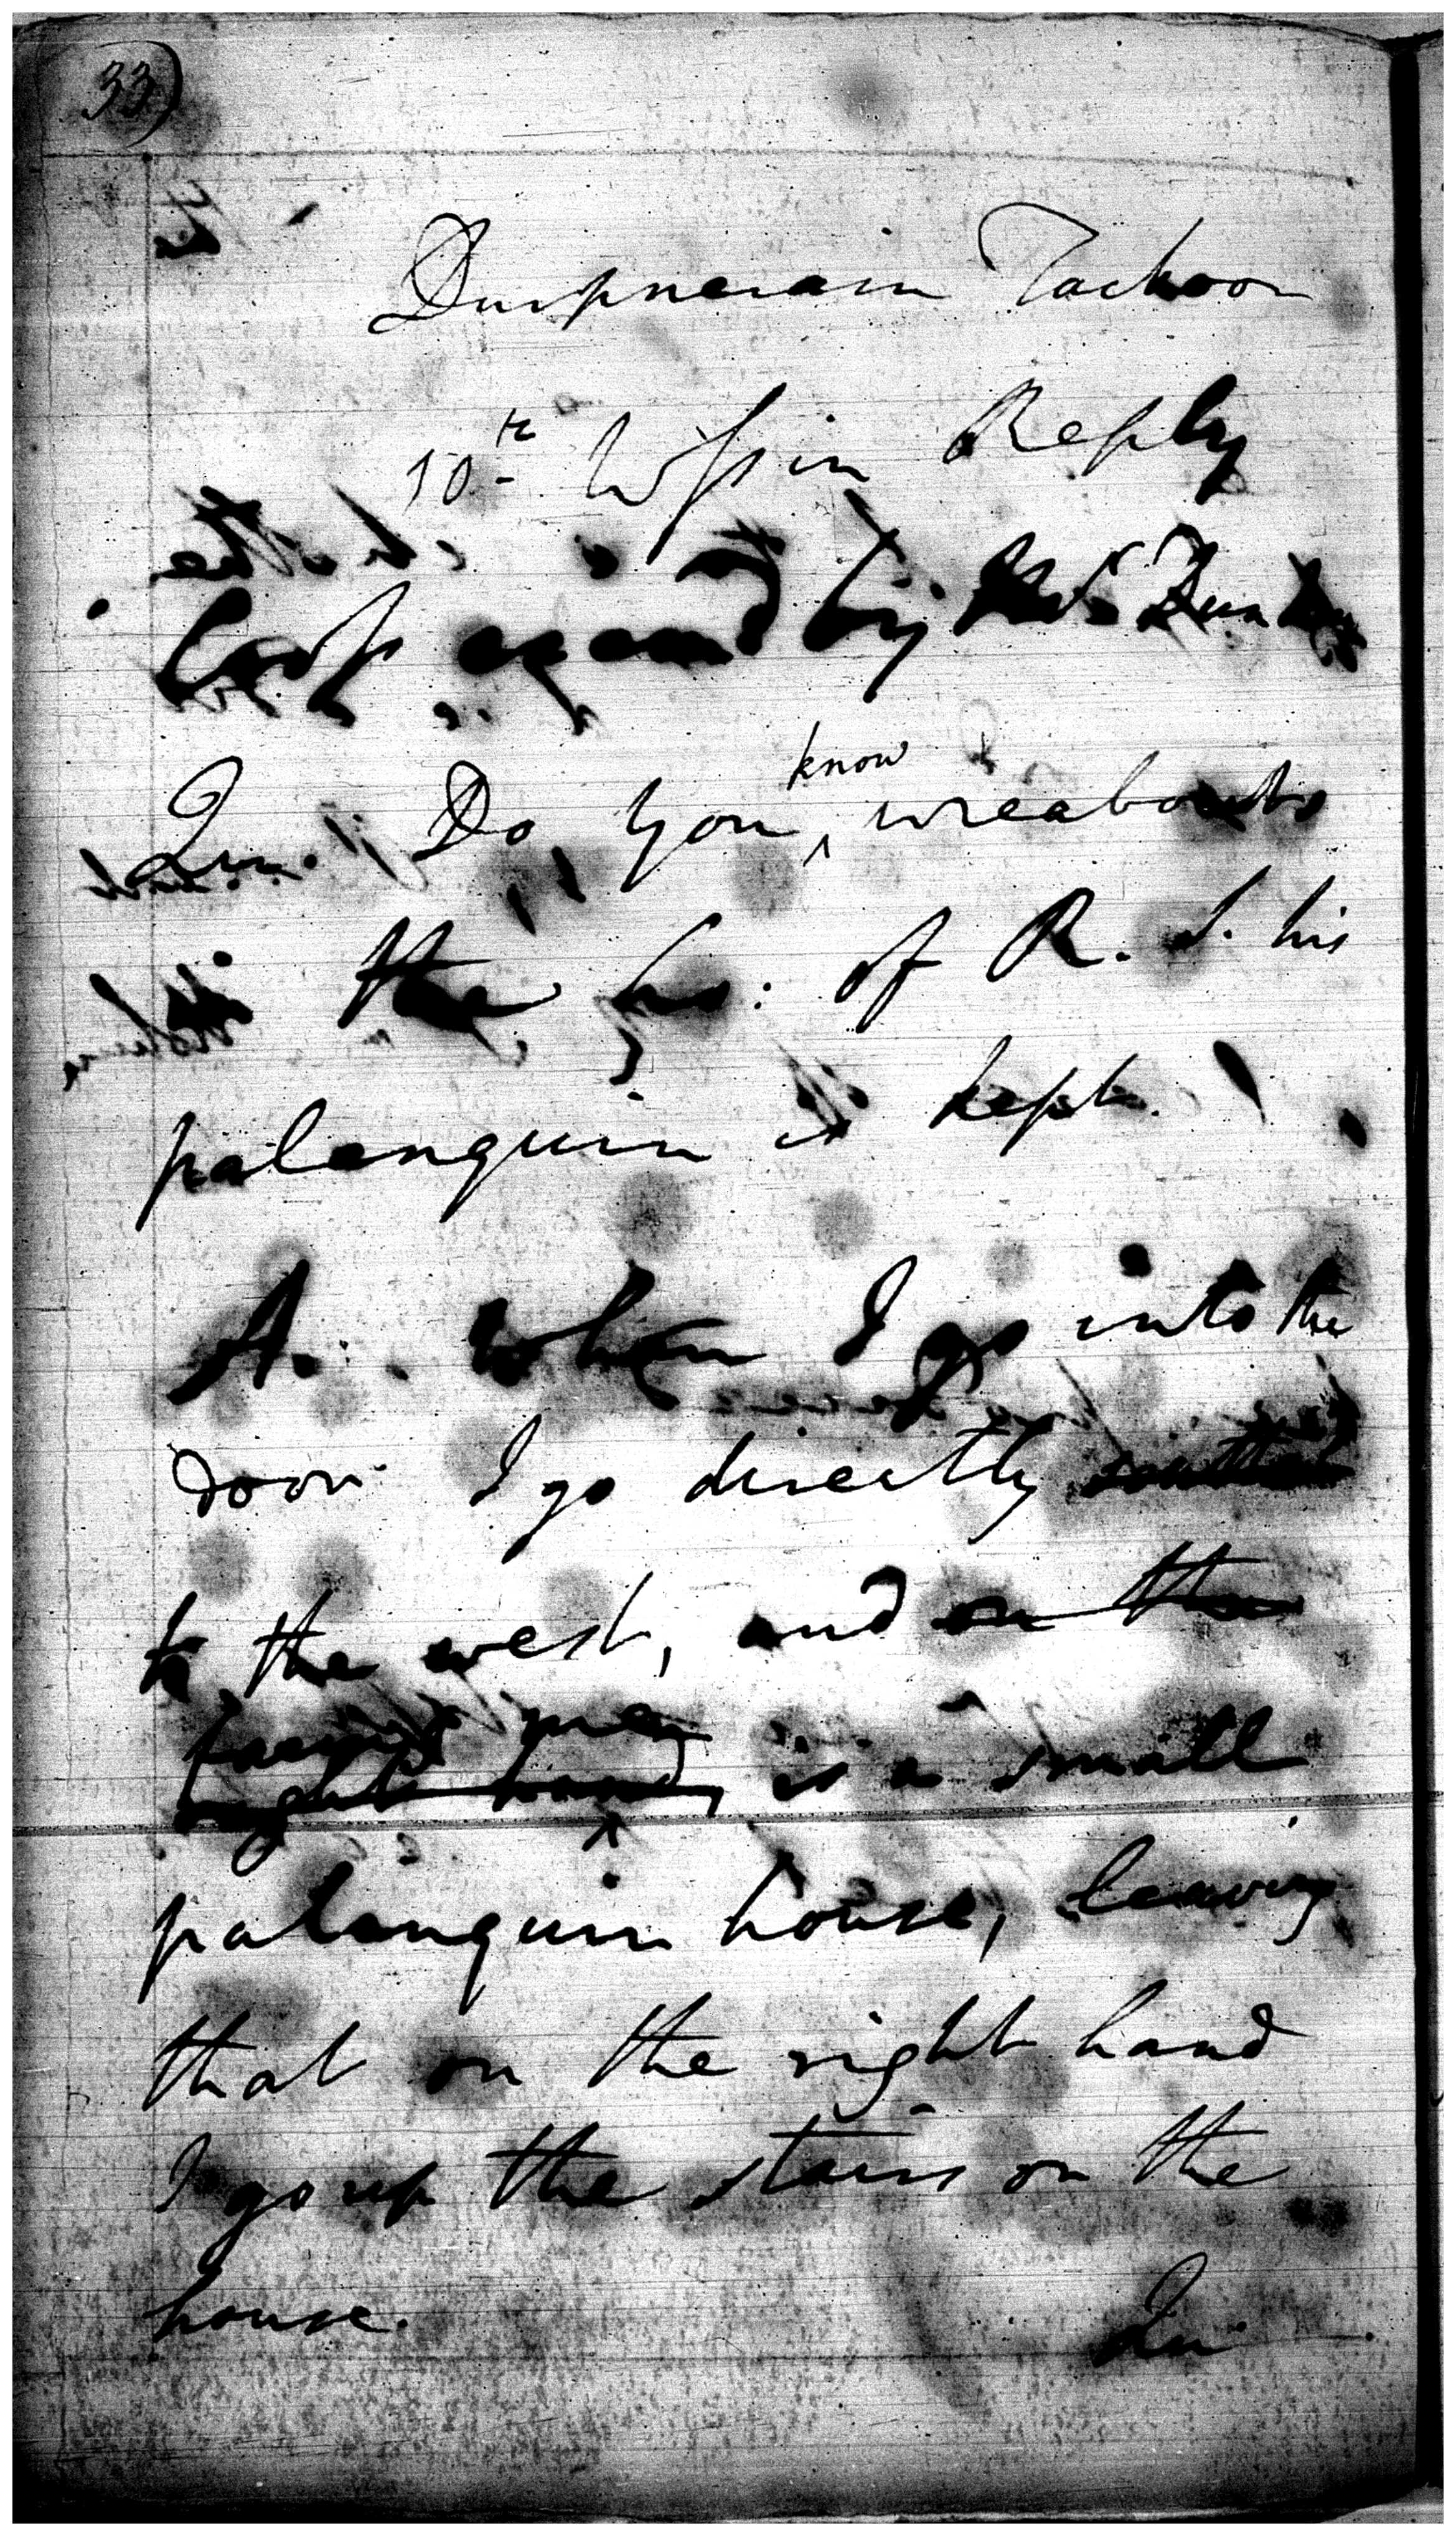 33)
Durpnerain Tackoor
10th Wss in Reply
by Mr. Dun
Qu. Do you know wreabouts
in the ho: of R. S. his
palenquin is kept.
A. When I go into the
door I go directly
to the west, and on the
right hand, is a small
palenquin house, leaving
that on the right hand
I go up the stairs on the
house.
Qu